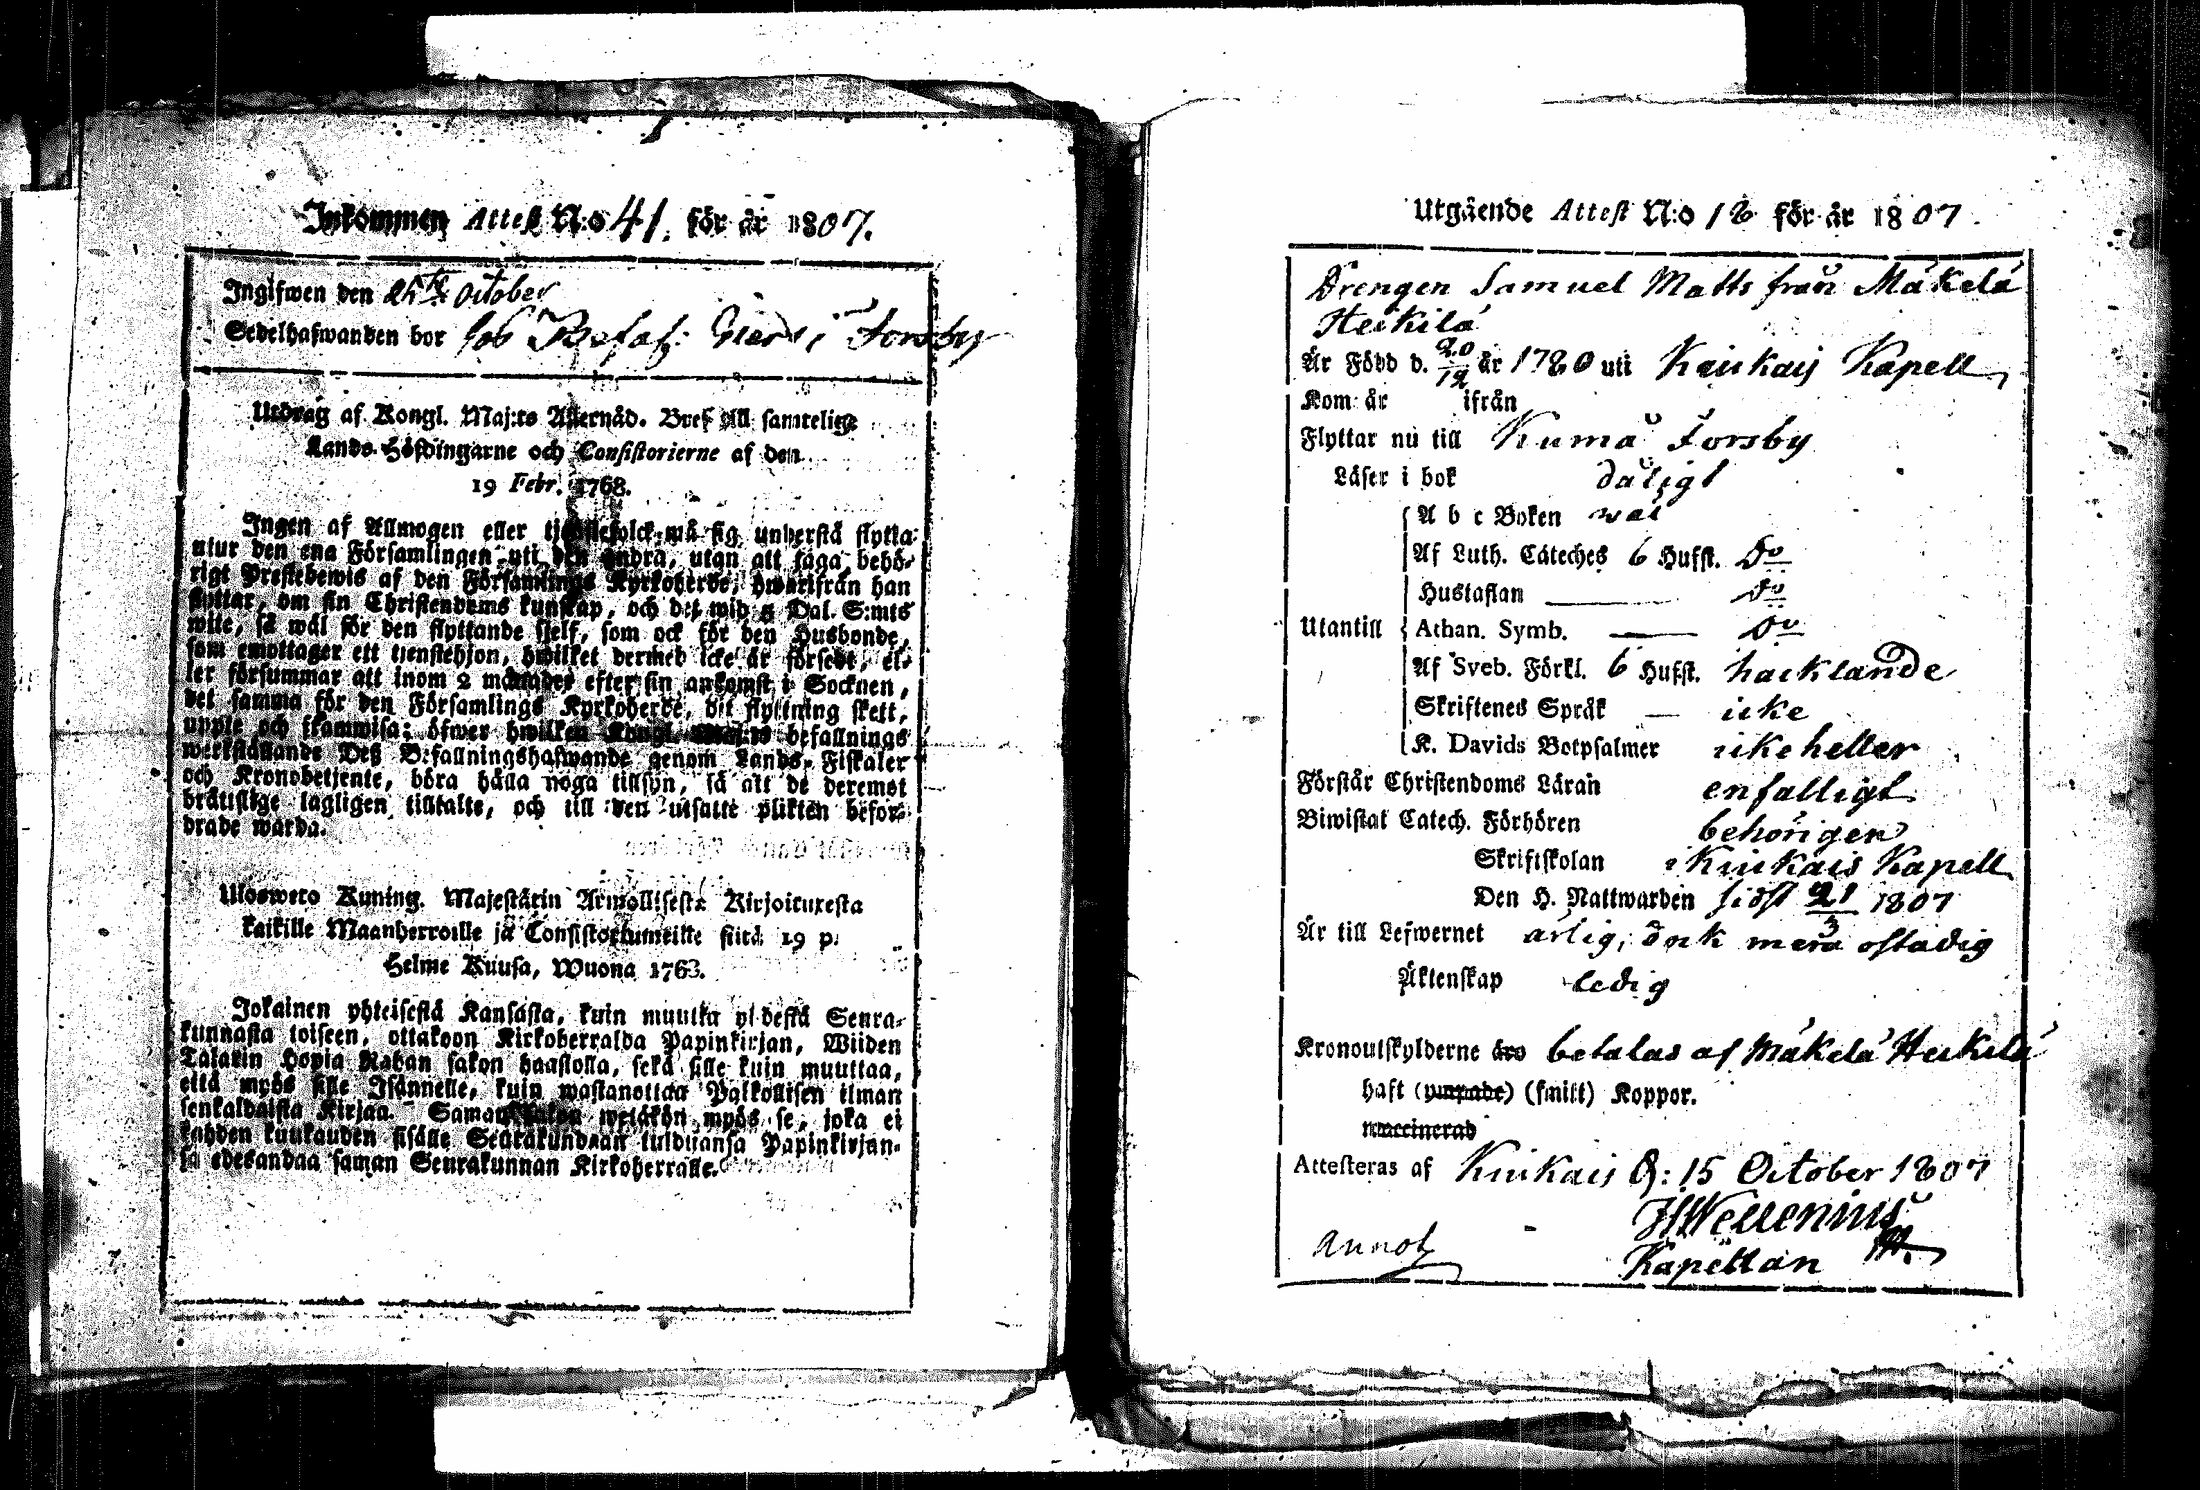 Inkommen Attest N:o 41. för år 1807.
Ingifwen den 25te October
Sedelhafwanden bor hos i Forsby
Utdrag af Kongl. Maj:ts Allernåd. Bref till samtelige
Lands-Höfdingarne och Consistorierne af den
19 Febr. 1768.
Ingen af Allmogen eller tjenstefolck må sig understå flytta
utur den ena Församlingen uti den andra, utan att äga behö-
rigt Prestebewis af den Församlings Kyrkoherde, hwarifrån han
flyttar, om sin Christendoms kunskap, och det wid 5 Dal. S:mts
wite, så wäl för den flyttande sjelf, som ock för den Husbonde,
som emottager ett tjenstehjon, hwilket dermed icke är försedt, el-
ler försummar att inom 2 månader efter sin ankomst i Socknen,
det samma för den Församlings Kyrkoherde, dit flyttning skett,
uppte och framwisa; öfwer hwilken Kongl. Maj:ts befallnings
werkställande Deß Befallningshafwande genom Lands-Fiskaler
och Kronobetjente, böra hålla noga tillsyn, så att de deremot
bråttslige lagligen tilltalte, och till den utsatte plikten befor-
drade warda.
Uloswero Kuning. Majestätin Armollisesta Kirjoituxesta
kaikille Maanherroille ja Consistoriumeille siitä 19 p.
Helme Kuusa, Wuona 1763.
Jokainen yhteisestä Kansasta, kuin muutta yhdestä Seura-
kunnasta toiseen, ottakoon Kirkoherralda Papinkirjan, Wiiden
Talarin Hopia Rahan sakon haastolla, sekä sille kuin muuttaa,
että myös sille Isännelle, kuin wastanottaa Palkollisen ilman
senkaldaista Kirjaa. Saman wetäkön myös se, joka ei
kahden kuukauden sisälle Seurakundaan tulduansa Papinkirjan-
sa edesandaa saman Seurakunnan Kirkoherralle.
Utgående Attest N:o 18 för år 1807.
Drengen Samuel Matts från Mäkelä
Heikilä
Är Född d. 20/12 år 1780 uti Kiukais Kapell
Kom år ifrån
Flyttar nu till Kumå Forsby
Läser i bok dåligt
A b c Boken wäl
Af Luth. Cateches 6 Hufst. Do
Hustaflan Do
Utantill Athan. Symb. Do
Af Sveb. Förkl. 6 Hufst. hacklande
Skriftenes Språk icke
K. Davids Botpsalmer icke heller
Förstår Christendoms Läran enfalligt
Biwistat Catech. Förhören behörigen
Skriftskolan i Kiukais Kapell
Den H. Nattwarden sidst 21/3 1807
Är till Lefwernet ärlig, önk mera ostadig
Äktenskap ledig
Kronoutskylderne äro betalas af Mäkelä Heikilä
haft (ympade) (smitt) Koppor.
waccinerad
Attesteras af Kiukais d: 15 October 1807
Kapellan
Annot